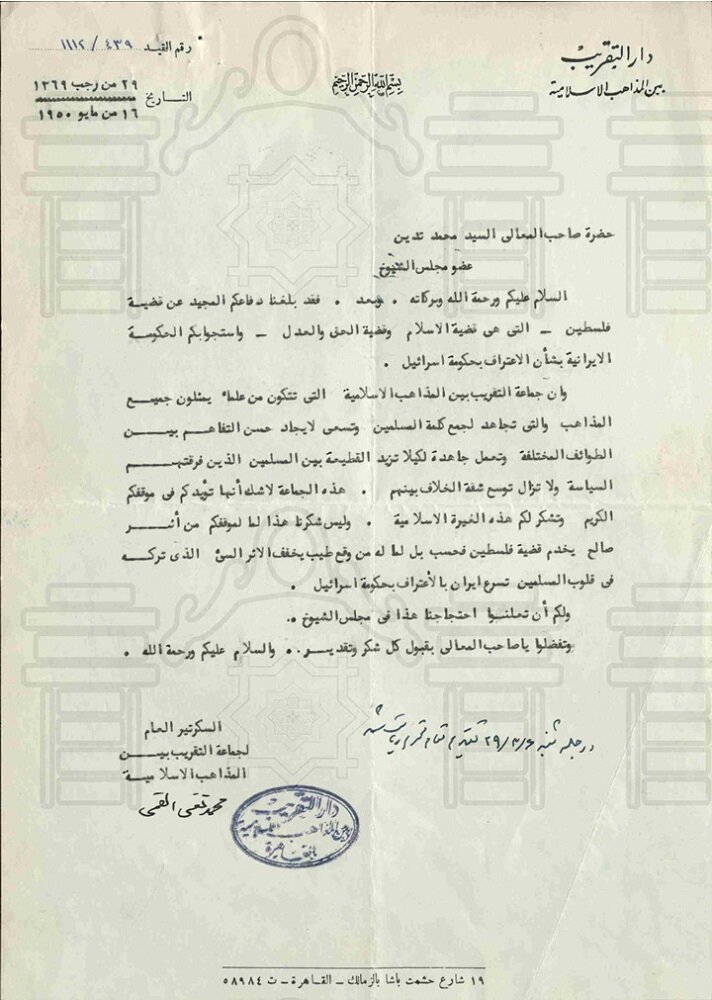 دار التقريب
بين المذاهب الاسلامية
بسم الله الرحمن الرحيم
رقم القيد ٤٣٩ / ١١١٢
التاريخ ٢٩ من رجب ١٣٦٩
١٦ من مايو ١٩٥٠
حضرة صاحب المعالى السيد محمد تدين
عضو مجلس الشيوخ
السلام عليكم ورحمة الله وبركاته . وبعد . فقد بلغنا دفاعكم المجيد عن قضية
فلسطين ـ التى هى قضية الاسلام وقضية الحق والعدل ـ واستجوابكم الحكومة
الايرانية بشأن الاعتراف بحكومة اسرائيل .
وان جماعة التقريب بين المذاهب الاسلامية التى تتكون من علماء يمثلون جميع
المذاهب والتى تجاهد لجمع كلمة المسلمين وتسعى لايجاد حسن التفاهم بين
الطوائف المختلفة وتعمل جاهدة لكيلا تزيد القطيعة بين المسلمين الذين فرقتهم
السياسة ولا تزال توسع شقة الخلاف بينهم . هذه الجماعة لاشك أنها تؤيدكم فى موقفكم
الكريم وتشكر لكم هذه الغيرة الاسلامية . وليس شكرنا هذا لما لموقفكم من أثر
صالح يخدم قضية فلسطين فحسب بل لما له من وقع طيب يخفف الاثر السئ الذى تركه
فى قلوب المسلمين تسرع ايران بالأعتراف بحكومة اسرائيل .
ولكم أن تعلنوا احتجاجنا هذا فى مجلس الشيوخ ..
وتفضلوا ياصاحب المعالى بقبول كل شكر وتقدير .. والسلام عليكم ورحمة الله .
السكرتير العام
لجماعة التقريب بين
المذاهب الاسلامية
محمد تقى القمى
در جلسه شنبه ٢٩/٣/٦ تقديم مقام
دار التقريب
بين المذاهب الاسلامية
بالقاهرة
١٩ شارع حشمت باشا بالزمالك ـ القاهرة ـ ت ٥٨٩٨٤